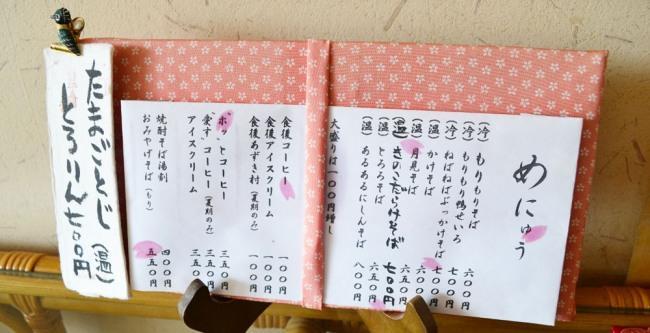 めにゅう
(冷) もりもりそば 六〇〇円
(冷) もりもり鴨せいろ 七〇〇円
(冷) ねばねばぶっかけそば 七〇〇円
(温) かけそば 六〇〇円
(温) 月見そば 六五〇円
(温) きのこだらけそば 七〇〇円
(温) とろろそば 六五〇円
(温) あるあるにしんそば 八〇〇円
大盛りは一〇〇円増し
食後コーヒー 一〇〇円
食後アイスクリーム 一〇〇円
食後あずき村 (夏期のみ) 一〇〇円
"ホッ"とコーヒー 三五〇円
"愛す"コーヒー (夏期のみ) 三五〇円
アイスクリーム 三五〇円
焼酎そば湯割 四〇〇円
おみやげそば (もり) 五五〇円
たまごとじ (温)
とろりん七〇〇円